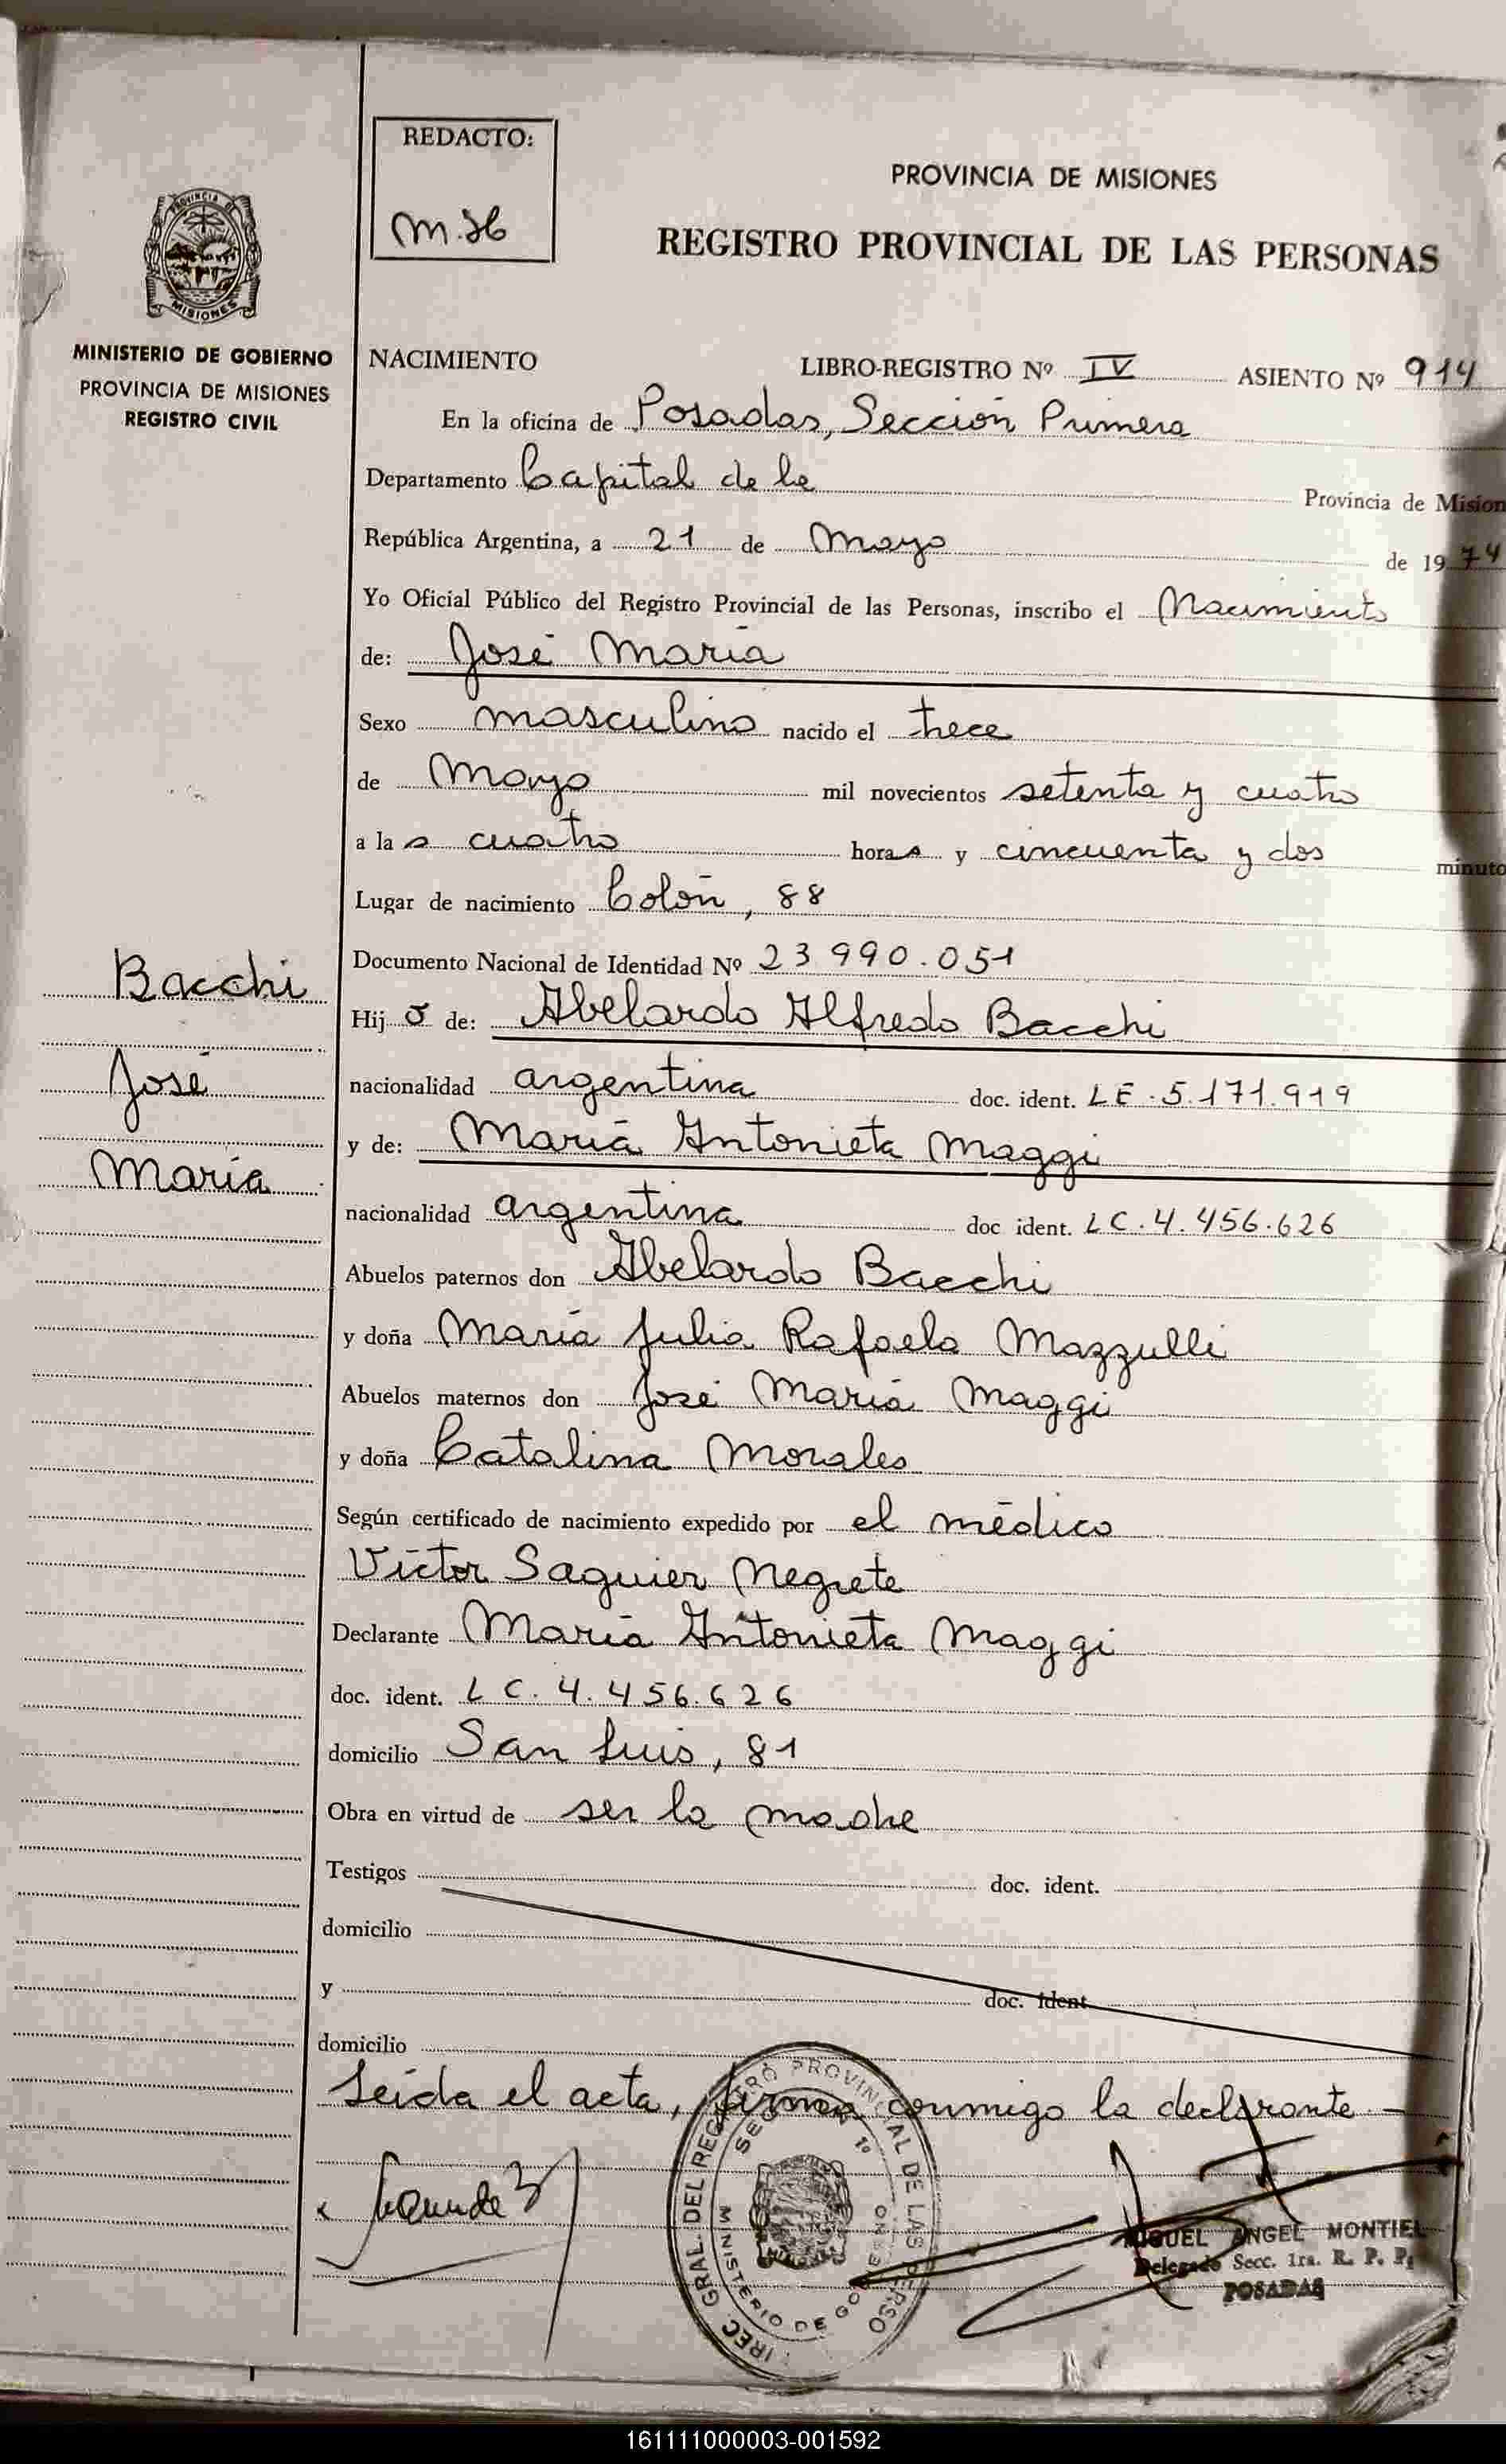 REDACTO:
PROVINCIA DE MISIONES
REGISTRO PROVINCIAL DE LAS PERSONAS
PROVINCIA DE
MISIONES
MINISTERIO DE GOBIERNO
PROVINCIA DE MISIONES
REGISTRO CIVIL
NACIMIENTO LIBRO-REGISTRO Nº IV ASIENTO Nº 914
En la oficina de Posadas, Sección Primera
Departamento Capital de la Provincia de Mision
República Argentina, a 21 de Mayo de 1974
Yo Oficial Público del Registro Provincial de las Personas, inscribo el Nacimiento
de: José María
Sexo masculino nacido el trece
de Mayo mil novecientos setenta y cuatro
a las cuatro horas y cincuenta y dos minuto
Lugar de nacimiento Colón, 88
Documento Nacional de Identidad Nº 23 990.051
Bacchi
Hijo de: Abelardo Alfredo Bacchi
José
nacionalidad argentina doc. ident. LE.5.171.919
y de: María Antonieta Maggi
María
nacionalidad argentina doc ident. LC.4.456.626
Abuelos paternos don Abelardo Bacchi
y doña María Julia Rafaela Mazzulli
Abuelos maternos don José María Maggi
y doña Catalina Morales
Según certificado de nacimiento expedido por el médico
Víctor Saguier Negrete
Declarante María Antonieta Maggi
doc. ident. LC.4.456.626
domicilio San Luis, 81
Obra en virtud de ser la madre
Testigos doc. ident.
domicilio
y doc. ident
domicilio
Leída el acta, firma conmigo la declarante
IREC. GRAL. DEL REGISTRO PROVINCIAL DE LAS PERSO
SECCION 1º
MINISTERIO DE GOBIERNO
MIGUEL ANGEL MONTIEL
Delegado Secc. 1ra. R. P. P.
POSADAS
161111000003-001592